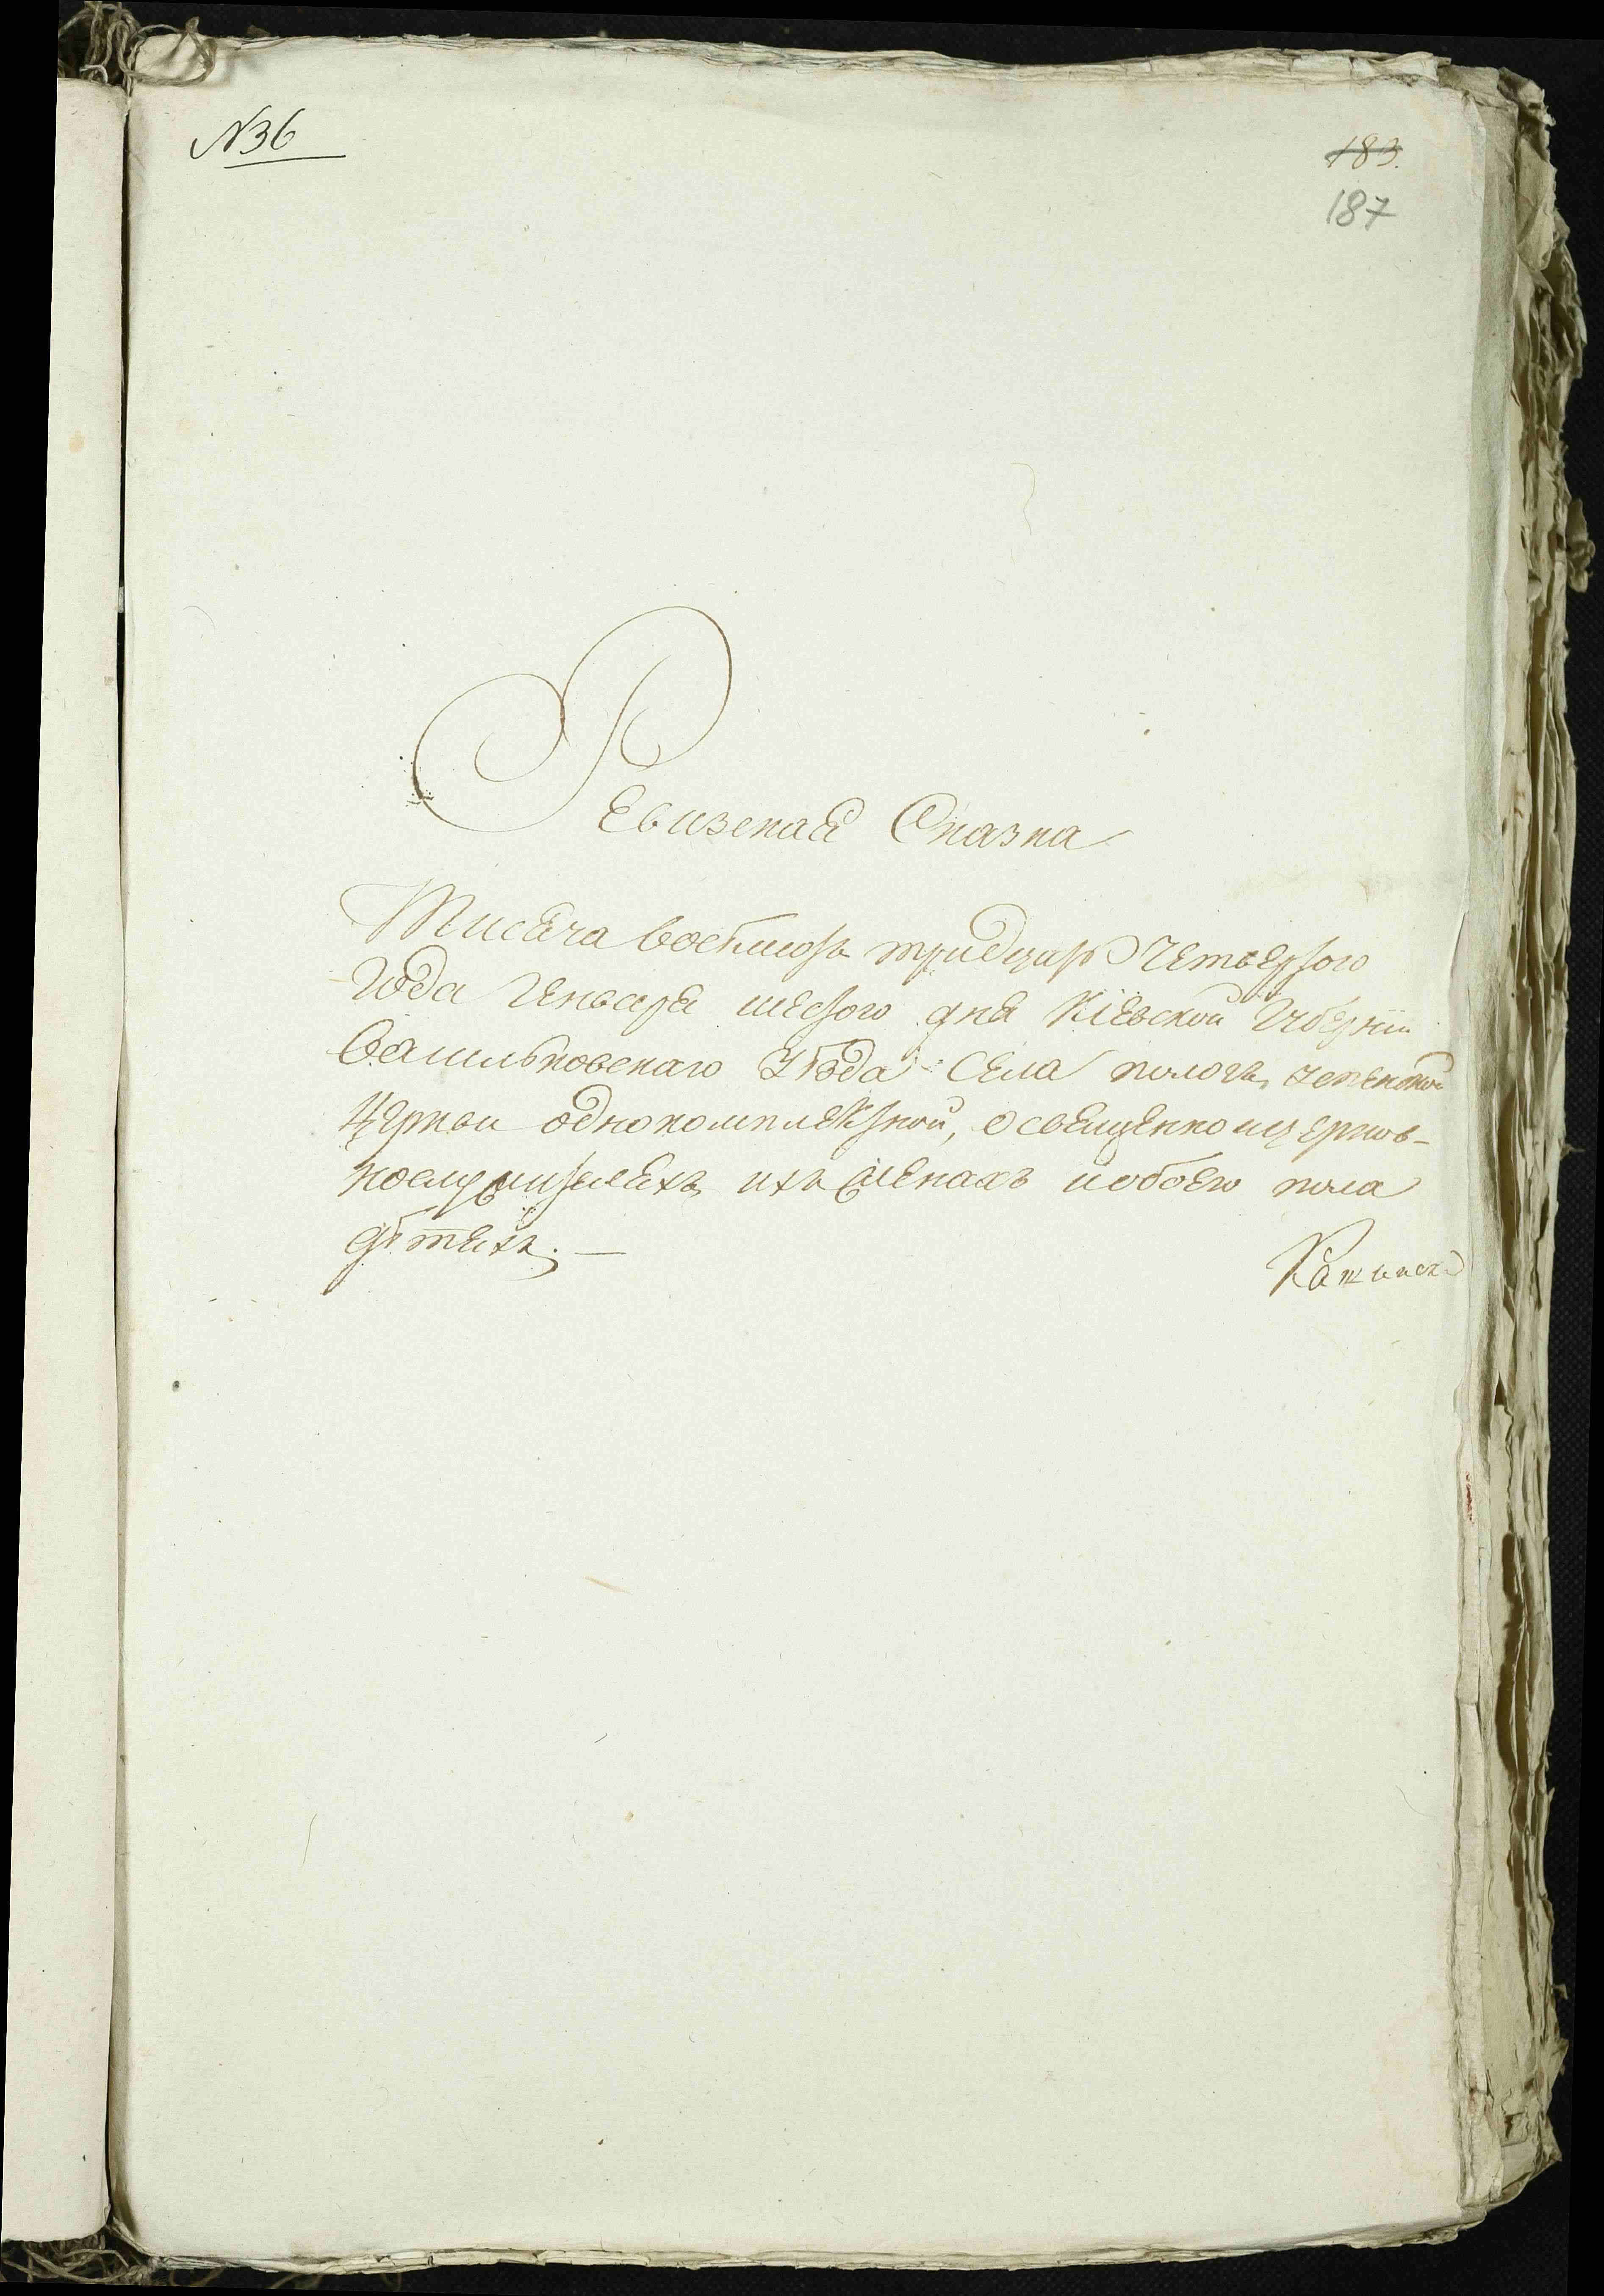 N36
183.
187
Ревизская Сказка
Тисяча восемсотъ тридцать Четвертого
Года Генваря шестого дня Кіевской Губерніи
Васильковского Уѣзда Села пологъ,
Церкви однокомплектной, о священноцерков-
нослужителяхъ ихъ женахъ и обоего пола
дѣтяхъ. —